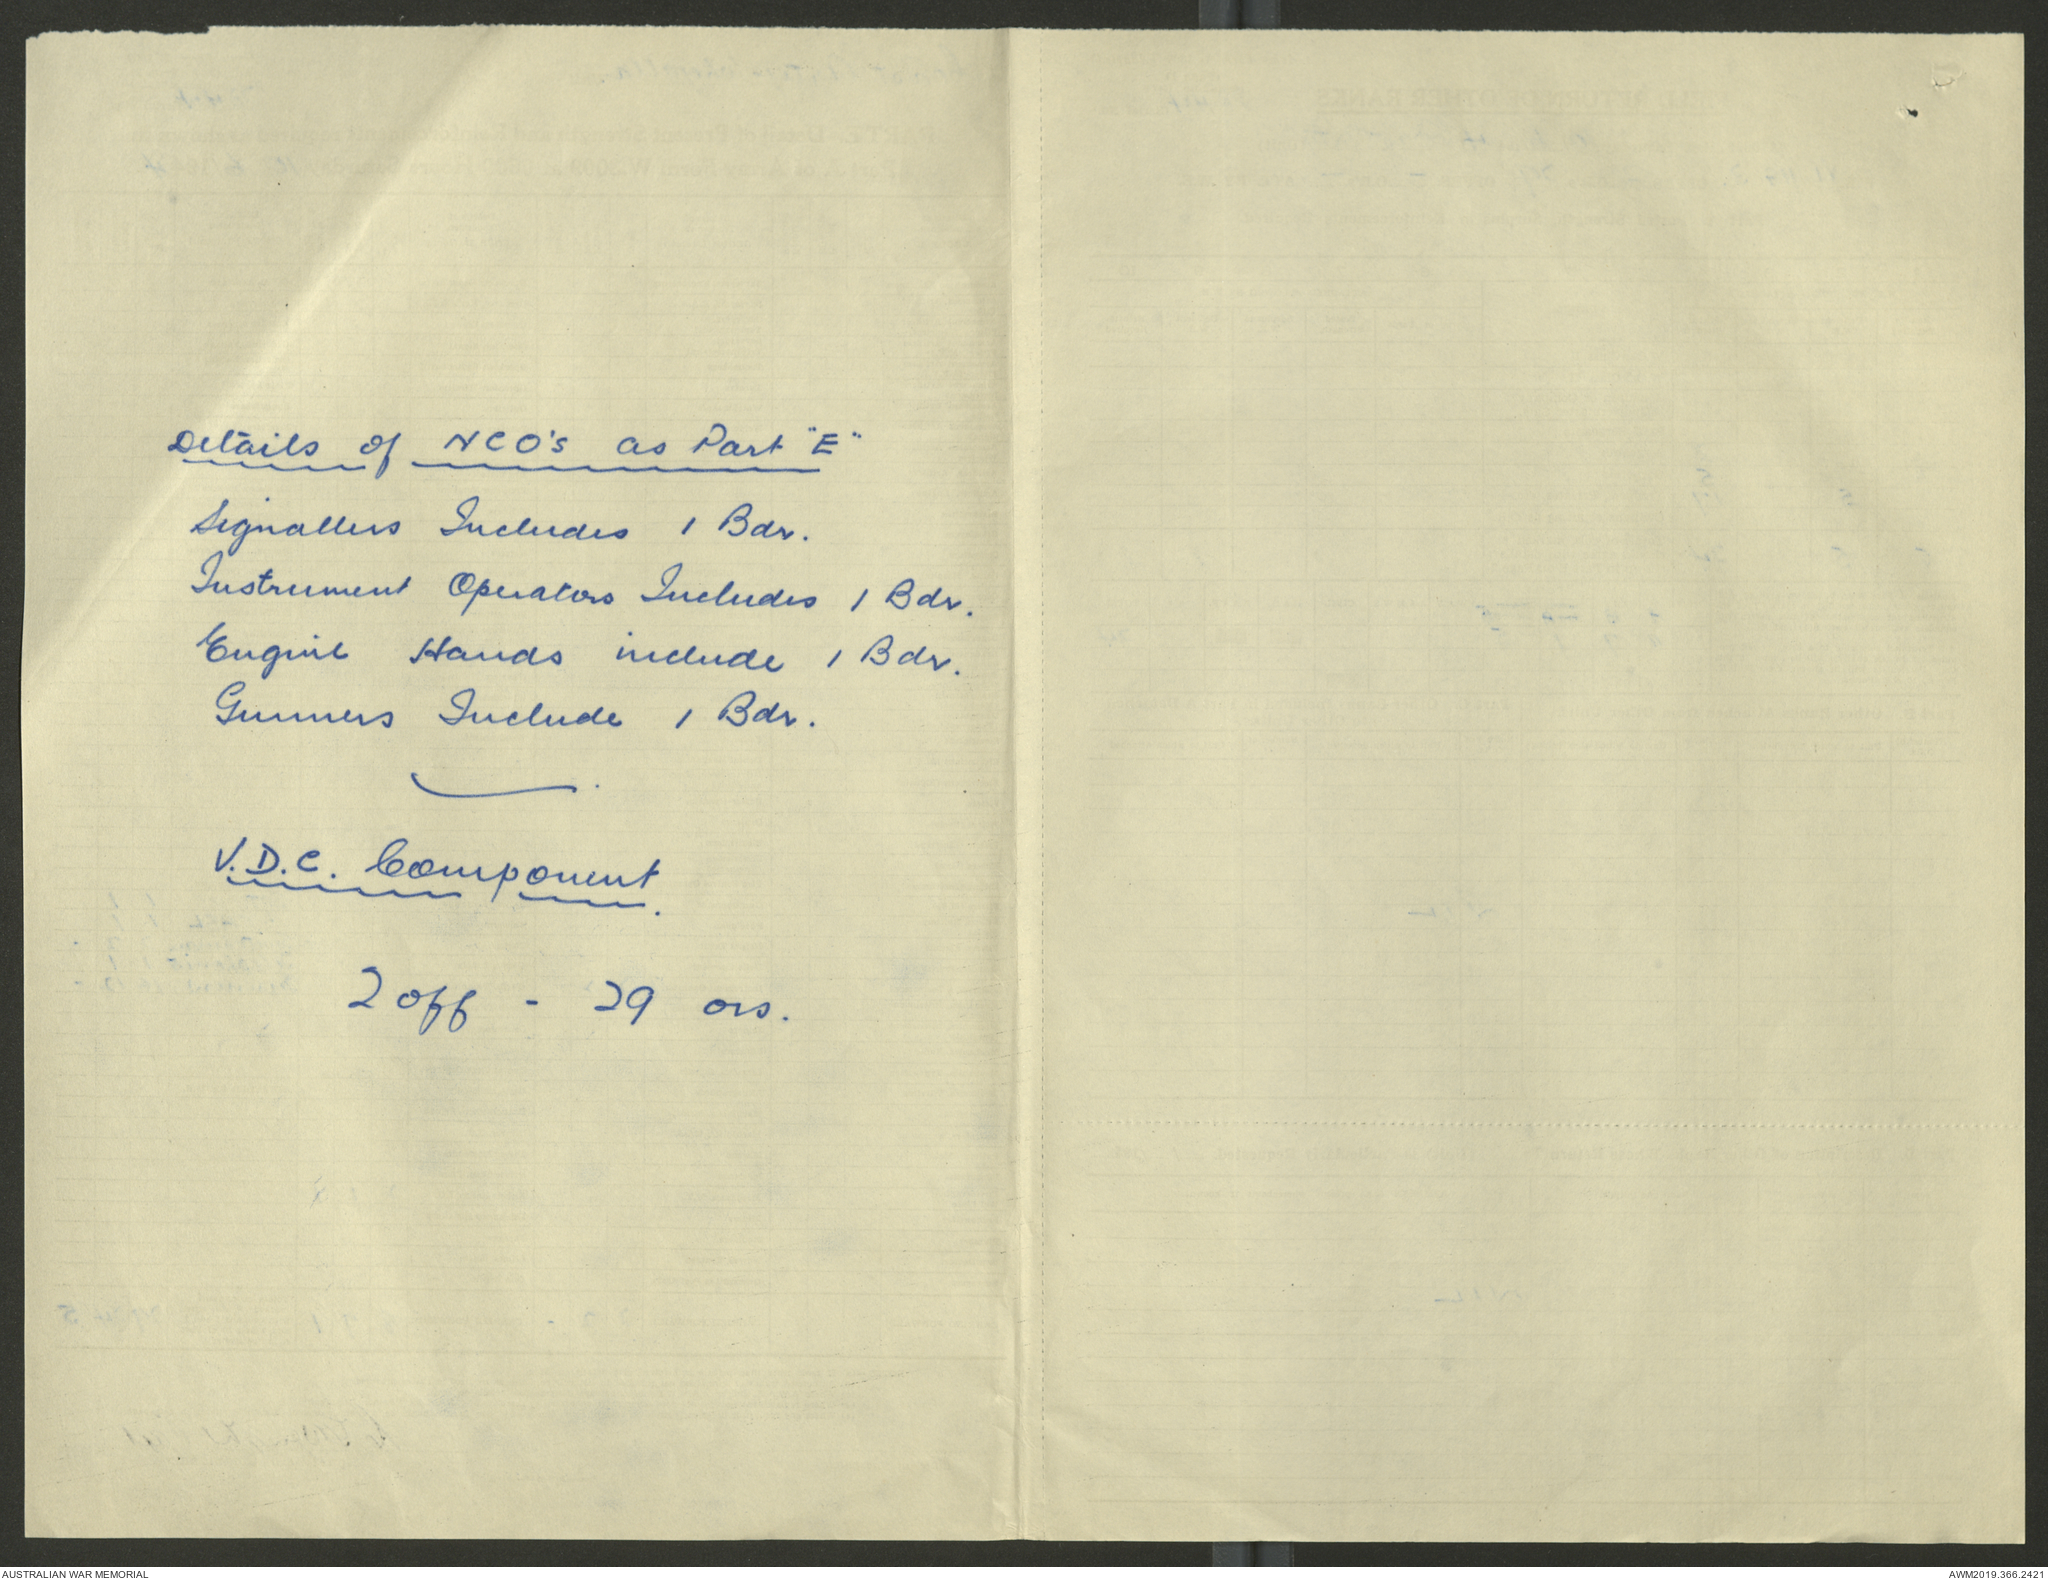 Details of NCO's as Part "E"
Signallers Includes 1 Bdr.
Instrument Operators Includes 1 Bdr.
Engine Hands include 1 Bdr.
Gunners Include 1 Bdr.
V.D.C. Component.
2 off - 29 ors.
AUSTRALIAN WAR MEMORIAL
AWM2019.366.2421